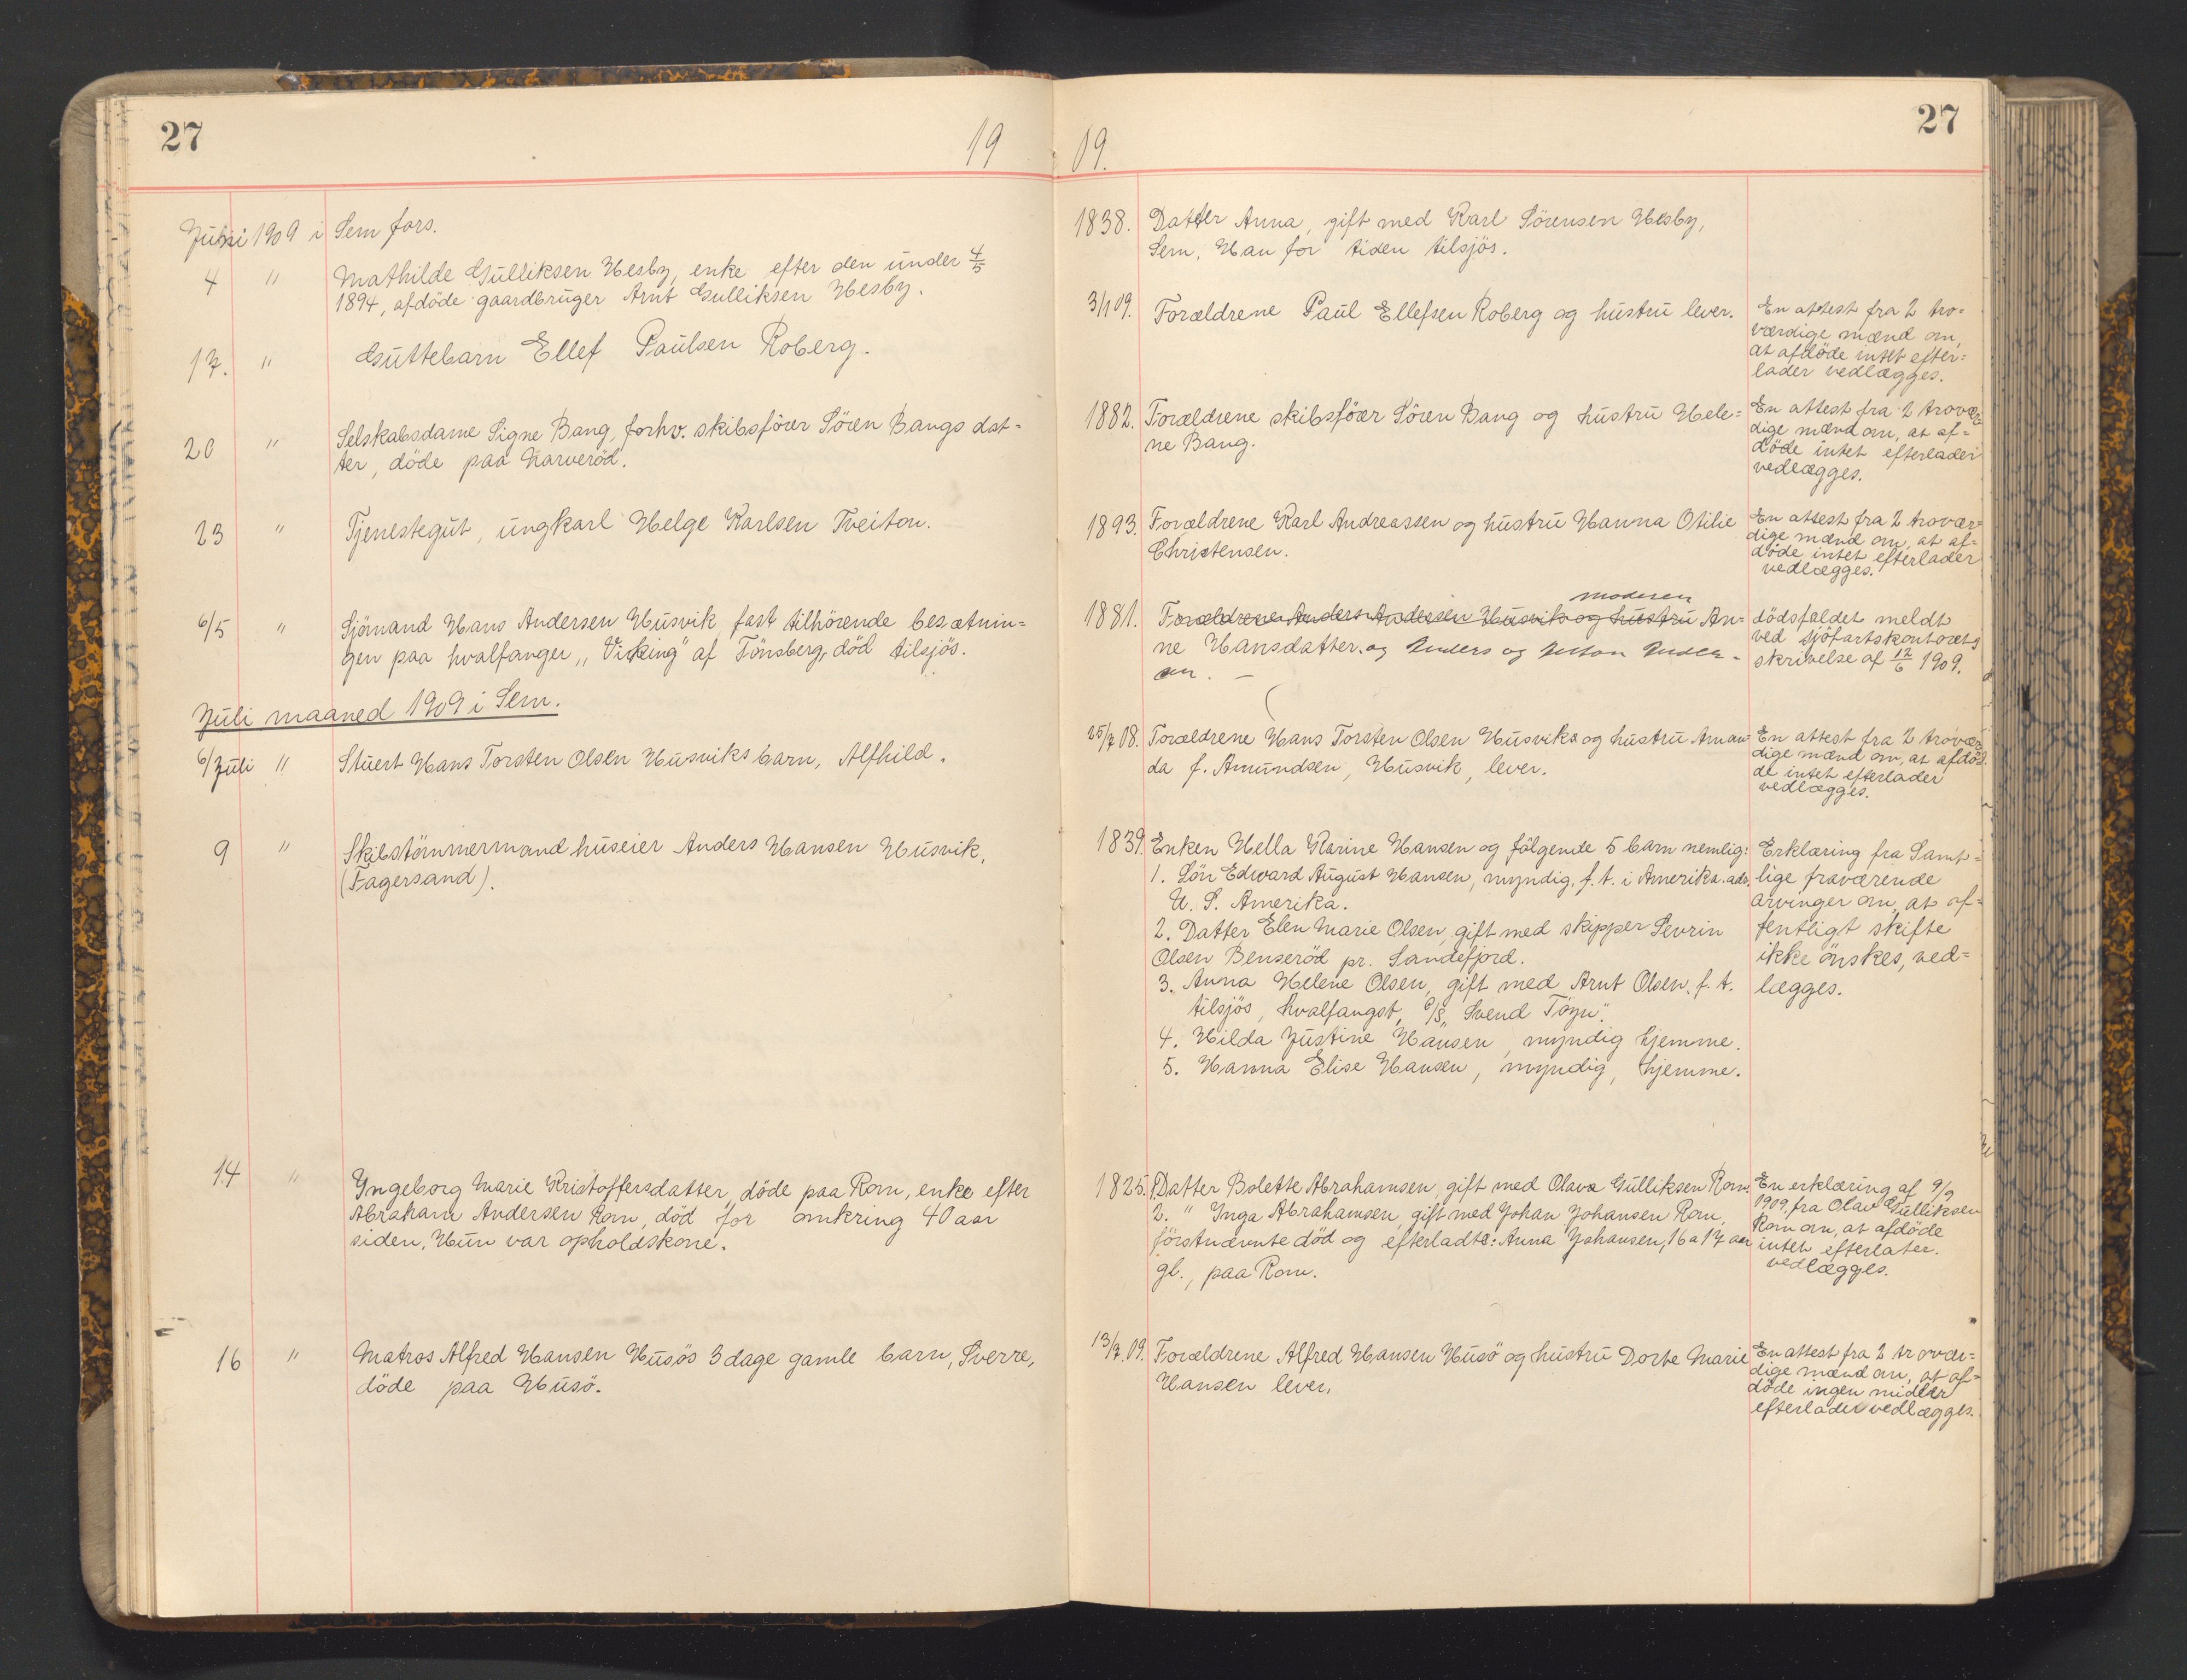 27
19
Juni 1909 i Sem fors.
4 " Mathilde Gulliksen Hesby, enke efter den under 4/5
1894, afdöde gaardbruger Arnt Gulliksen Hesby.
17. " Guttebarn Ellef Paulsen Roberg.
20 " Selskabsdame Signe Bang, forhv. skibsförer Sören Bangs dat=
ter, döde paa Narveröd.
23 " Tjenestegut, ungkarl Helge Karlsen Tveiton.
6/5 " Sjömand Hans Andersen Husvik fast tilhörende besætnin=
gen paa hvalfanger „Viking" af Tönsberg, död tilsjös.
Juli maaned 1909 i Sem.
6/Juli " Stuert Hans Torsten Olsen Husviks barn, Alfhild.
9 " Skibstömmermand huseier Anders Hansen Husvik,
(Fagersand).
14 " Yngeborg Marie Kristoffersdatter, döde paa Rom, enke efter
Abraham Andersen Rom, död for omkring 40 aar
siden. Hun var opholdskone.
16 " Matros Alfred Hansen Husös 3 dage gamle barn, Sverre,
döde paa Husö.
27
09.
1838. Datter Anna, gift med Karl Sörensen Hesby,
Sem. Han for tiden tilsjös.
3/1 09. Forældrene Paul Ellefsen Roberg og hustru lever.
En attest fra 2 tro=
værdige mænd om,
at afdöde intet efter=
lader vedlægges.
1882. Forældrene skibsförer Sören Bang og hustru Hele=
ne Bang.
En attest fra 2 trovær=
dige mænd om, at af=
döde intet efterlader
vedlægges.
1893. Forældrene Karl Andreassen og hustru Hanna Otilie
Christensen.
En attest fra 2 trovær=
dige mænd om, at af=
döde intet efterlader
vedlægges.
moderen
1881. Forældrene Anders Andersen Husvik og hustru An=
ne Hansdatter. og Anders og Anton Ander=
sen. —
dödsfaldet meldt
ved sjöfartskontorets
skrivelse af 12/6 1909.
25/7 08. Forældrene Hans Torsten Olsen Husviks og hustru Aman=
da f. Amundsen, Husvik, lever.
En attest fra 2 trovær=
dige mænd om, at afdö=
de intet efterlader
vedlægges.
1839. Enken Hella Karine Hansen og fölgende 5 barn nemlig:
1. Sön Edward August Hansen, myndig, f. t. i Amerika. ads.
U. S. Amerika.
2. Datter Elen Marie Olsen, gift med skipper Sevrin
Olsen Benseröd pr. Sandefjord.
3. Anna Helene Olsen, gift med Arnt Olsen, f. t.
tilsjös, hvalfangst, D/S „Svend Föyn".
4. Hilda Justine Hansen, myndig hjemme.
5. Hanna Elise Hansen, myndig, hjemme.
Erklæring fra Samt=
lige fraværende
arvinger om, at of=
fentligt skifte
ikke önskes, ved=
lægges.
1825. Datter Bolette Abrahamsen, gift med Olava Gulliksen Rom.
2. " Inga Abrahamsen, gift med Johan Johansen Rom,
förstnævnte död og efterladte: Anna Johansen, 16 a 17 aar
gl., paa Rom.
En erklæring af 9/9
1909, fra Olav Gulliksen
Rom om, at afdöde
intet efterlater.
vedlægges.
13/7.09. Forældrene Alfred Hansen Husö og hustru Dorte Marie
Hansen lever.
En attest fra 2 trovær=
dige mænd om, at af=
döde ingen midler
efterlader vedlægges.